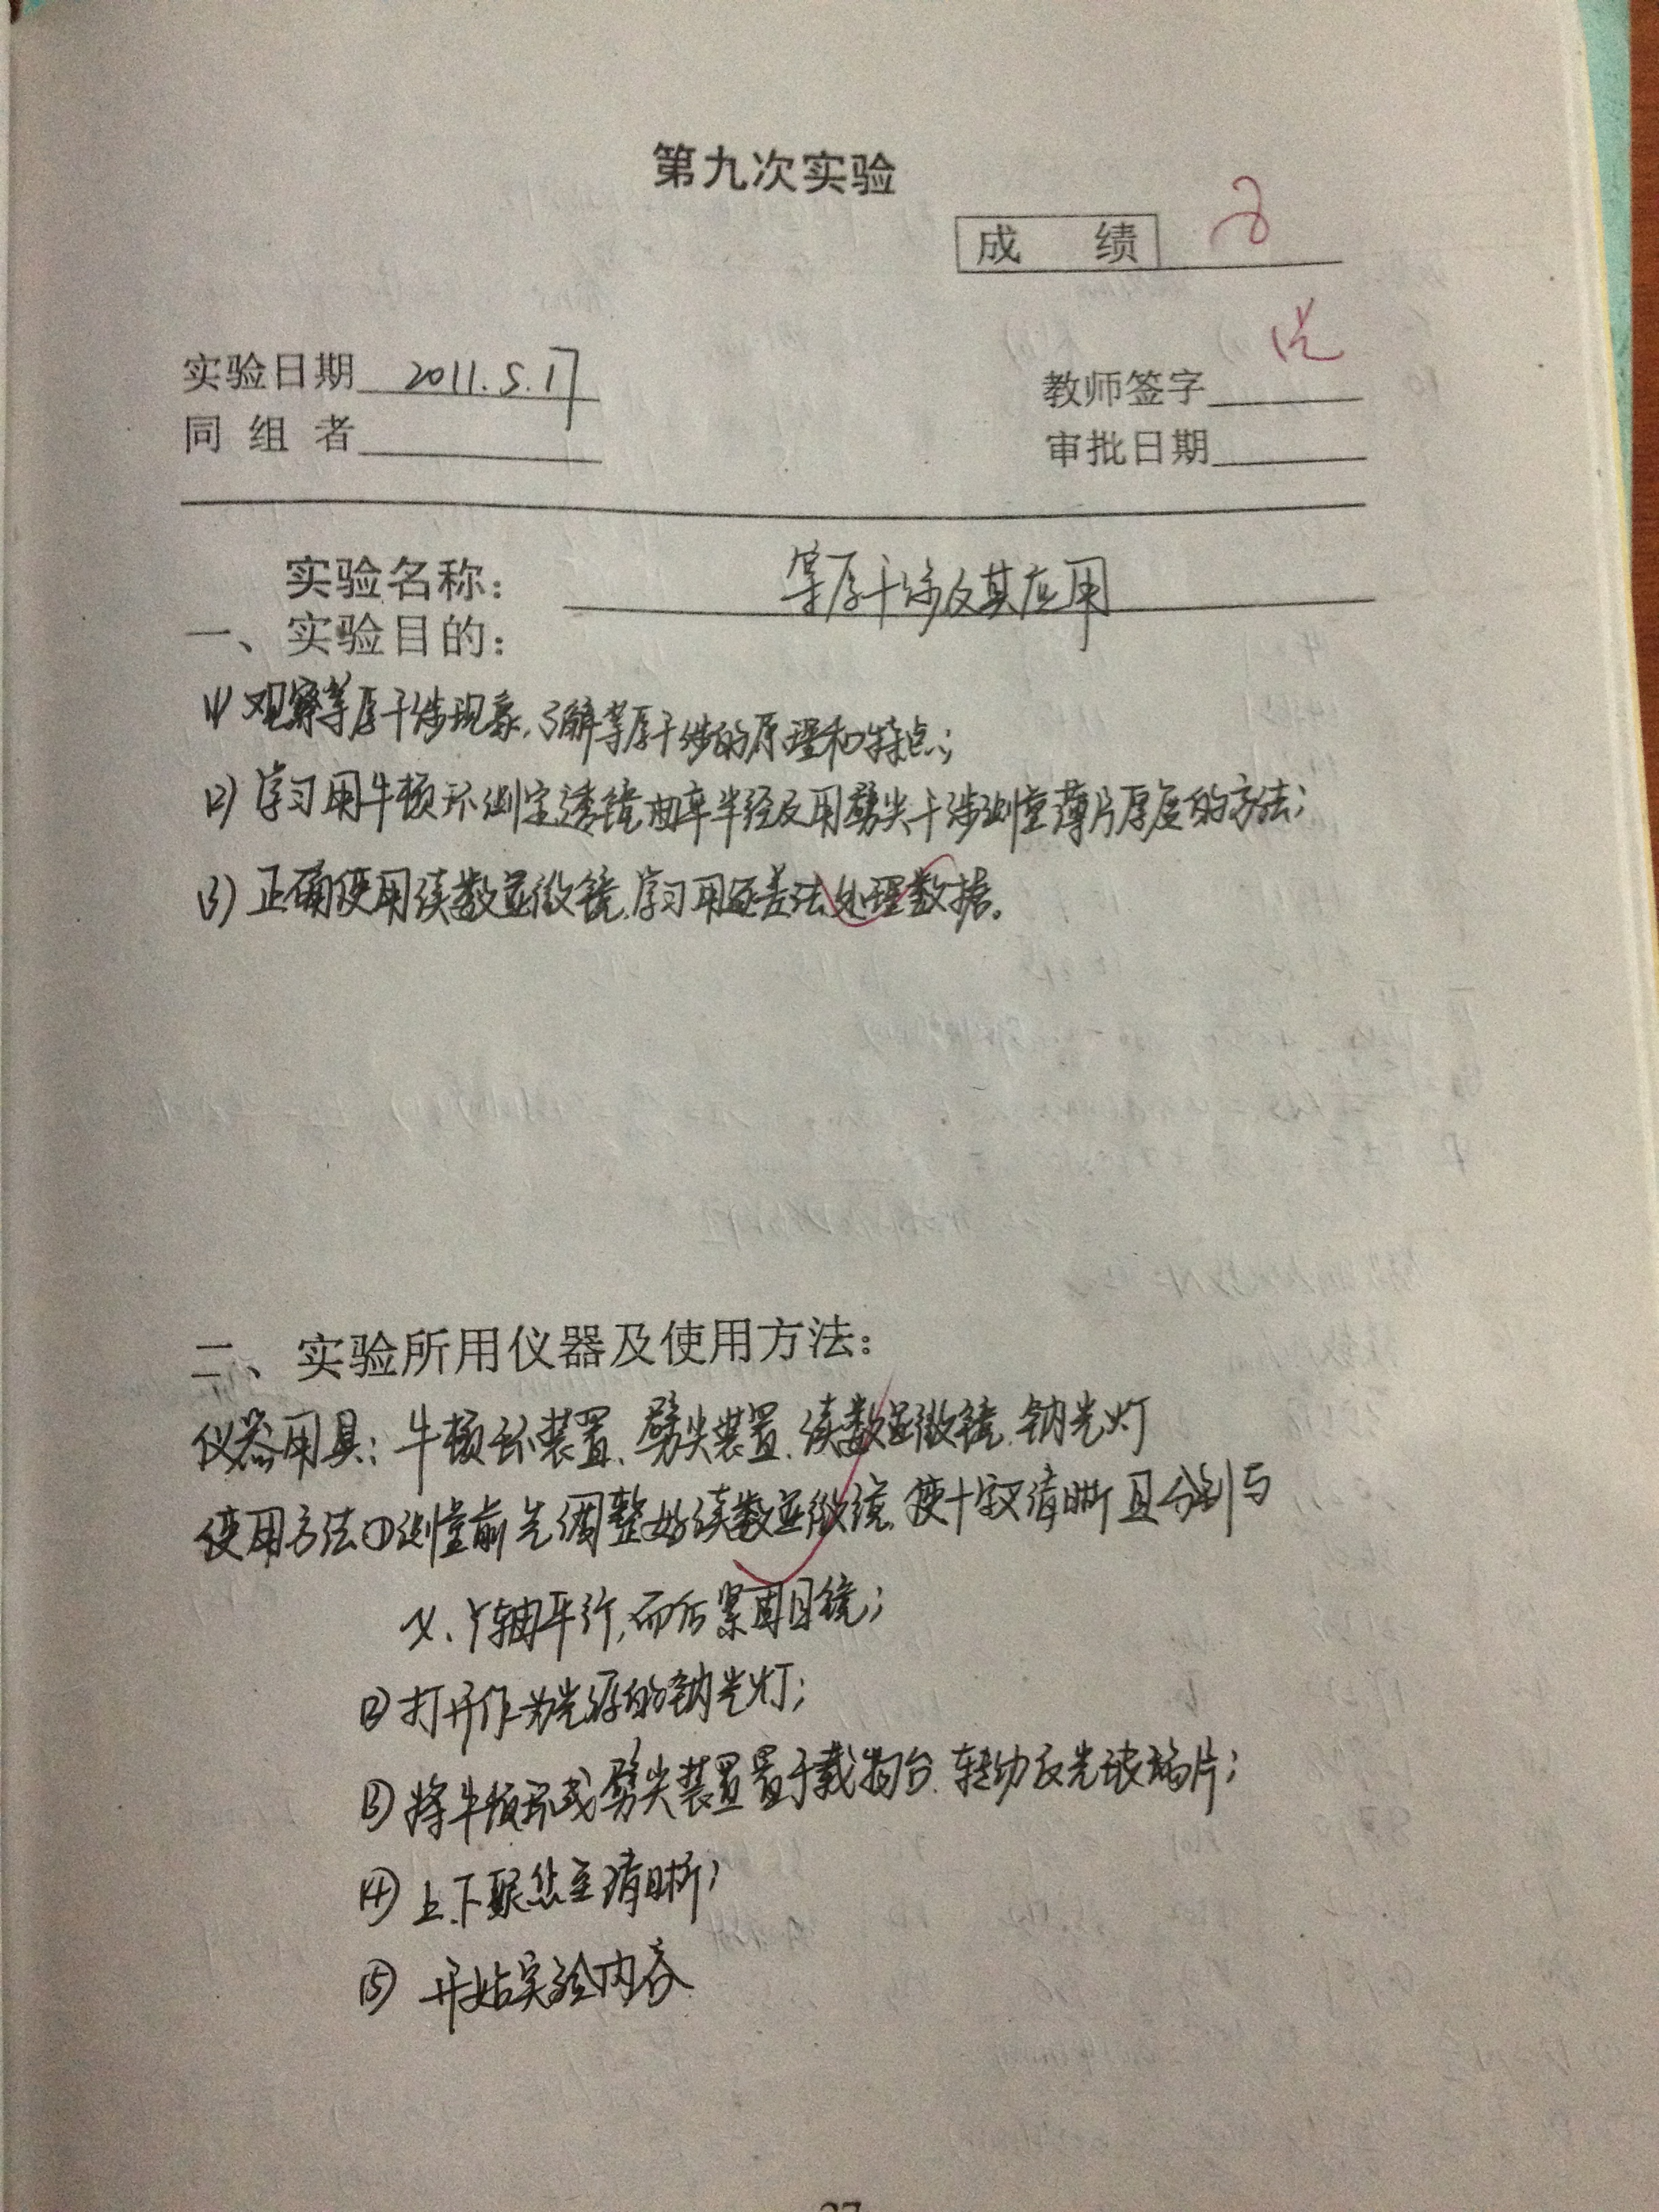 第九次实验
成 绩
实验日期 2011.5.17
教师签字
同组者
审批日期
实验名称: 等厚干涉及其应用
一、实验目的:
(1) 观察等厚干涉现象,了解等厚干涉的原理和特点;
(2) 学习用牛顿环测定透镜曲率半径及用劈尖干涉测量薄片厚度的方法;
(3) 正确使用读数显微镜,学习用逐差法处理数据。
二、实验所用仪器及使用方法:
仪器用具: 牛顿环装置、劈尖装置、读数显微镜、钠光灯
使用方法①测量前先调整好读数显微镜,使十字叉清晰且分别与
X、Y轴平行,而后紧固目镜;
②打开作为光源的钠光灯;
③将牛顿环或劈尖装置置于载物台,转动反光玻璃片;
④上、下聚焦至清晰;
⑤ 开始实验内容
27